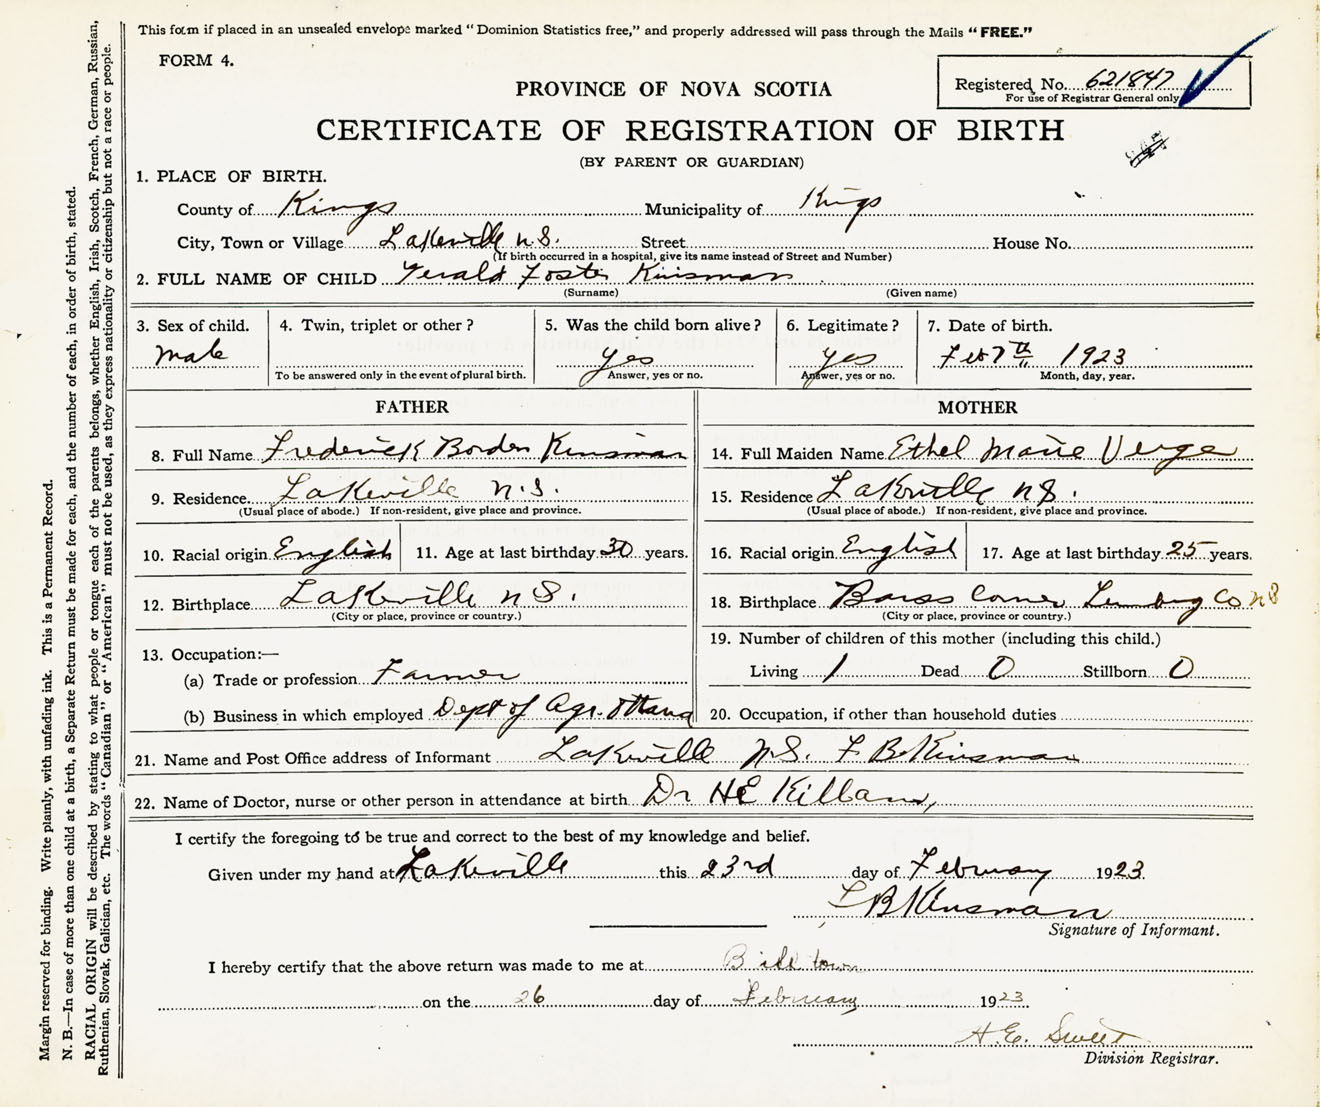 This form if placed in an unsealed envelope marked "Dominion Statistics free," and properly addressed will pass through the Mails "FREE."
FORM 4.
Registered No. 621847
For use of Registrar General only
PROVINCE OF NOVA SCOTIA
CERTIFICATE OF REGISTRATION OF BIRTH
(BY PARENT OR GUARDIAN)
1. PLACE OF BIRTH.
County of Kings Municipality of Kings
City, Town or Village Lakeville N.S. Street House No.
(If birth occurred in a hospital, give its name instead of Street and Number)
2. FULL NAME OF CHILD Gerald Foster Kinsman
(Surname) (Given name)
3. Sex of child. 4. Twin, triplet or other? 5. Was the child born alive? 6. Legitimate? 7. Date of birth.
male yes yes Feb 7th 1923
To be answered only in the event of plural birth. Answer, yes or no. Answer, yes or no. Month, day, year.
FATHER MOTHER
8. Full Name Frederick Borden Kinsman 14. Full Maiden Name Ethel Marie Verge
9. Residence Lakeville N.S. 15. Residence Lakeville N.S.
(Usual place of abode.) If non-resident, give place and province. (Usual place of abode.) If non-resident, give place and province.
10. Racial origin English 11. Age at last birthday 30 years. 16. Racial origin English 17. Age at last birthday 25 years.
12. Birthplace Lakeville N.S. 18. Birthplace Barss Corner Lunenburg Co NS
(City or place, province or country.) (City or place, province or country.)
19. Number of children of this mother (including this child.)
13. Occupation:—
Living 1 Dead 0 Stillborn 0
(a) Trade or profession Farmer
(b) Business in which employed Dept of Agr. Ottawa 20. Occupation, if other than household duties
21. Name and Post Office address of Informant Lakeville N.S. F B Kinsman
22. Name of Doctor, nurse or other person in attendance at birth Dr HE Killam,
I certify the foregoing to be true and correct to the best of my knowledge and belief.
Given under my hand at Lakeville this 23rd day of February 1923
F B Kinsman
Signature of Informant.
I hereby certify that the above return was made to me at Billtown
on the 26 day of February 1923
H. E. Sweet
Division Registrar.
Margin reserved for binding. Write plainly, with unfading ink. This is a Permanent Record.
N. B.—In case of more than one child at a birth, a Separate Return must be made for each, and the number of each, in order of birth, stated.
RACIAL ORIGIN will be described by stating to what people or tongue each of the parents belongs, whether English, Irish, Scotch, French, German, Russian,
Ruthenian, Slovak, Galician, etc. The words "Canadian" or "American" must not be used, as they express nationality or citizenship but not a race or people.